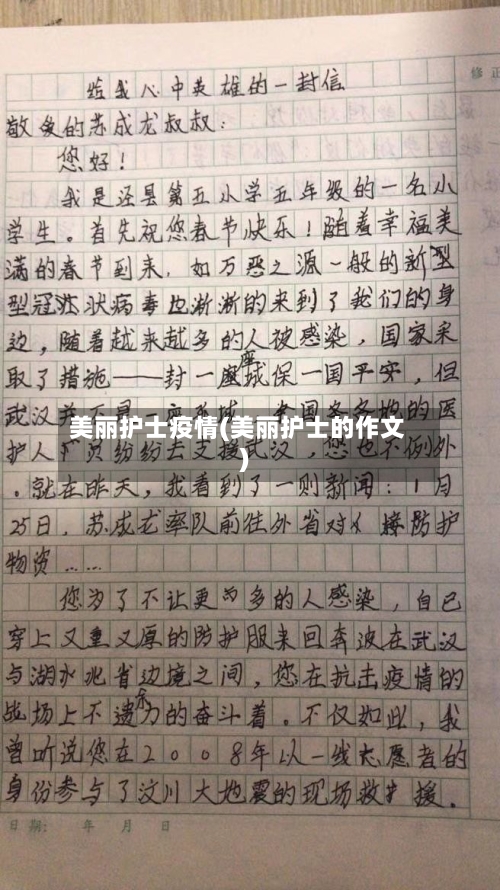 给我心中英雄的一封信
修正
敬爱的苏成龙叔叔：
您好！
我是泾县第五小学五年级的一名小
学生。首先祝您春节快乐！随着幸福美
满的春节到来，如万恶之源一般的新型
型冠状病毒也渐渐的来到了我们的身
边，随着越来越多的人被感染，国家采
取了措施——封一座城保一国平安，但
武汉并不是一座
全国各各地的医
护人
员纷纷去支援武汉，您也不例外
美丽护士疫情(美丽护士的作文
)
。就在昨天，我看到了一则新闻：1月
25日，苏成龙率队前往外省对
接防护
物资……
您为了不让更多的人感染，自已
穿上又重又厚的防护服来回奔波在武汉
与湖北省边境之间，您在抗击疫情的
战场上不遗余力的奋斗着。不仅如此，我
曾听说您在2008年以一线志愿者的
身份参与了汶川大地震的现场救援。
日期： 年 月 日